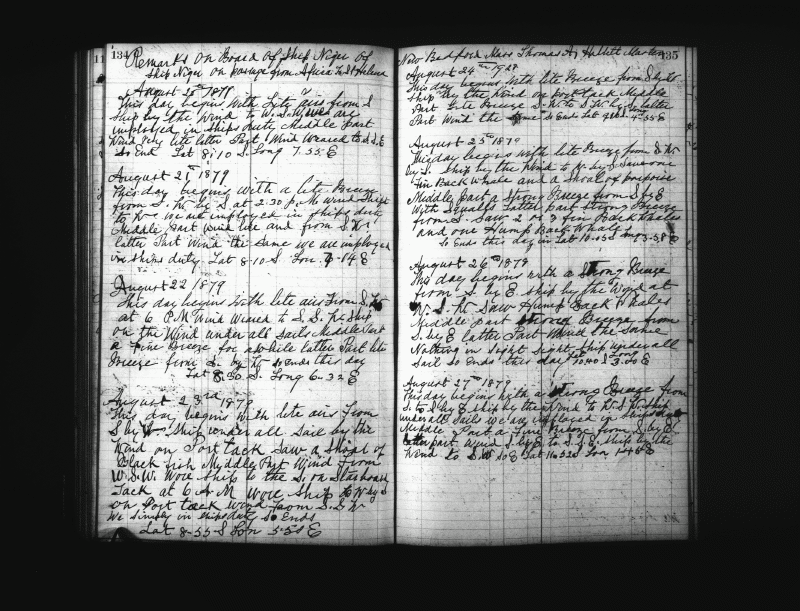 134
Remarks on Board of Ship Niger of
Ship Niger on passage from Africa to St Helena
August 20 1879
This day begins with lite airs from S
Ship by the wind to W.S.W. we are
imployed in ships duty Middle part
Wind very lite latter Part Wind veared to S.S.E
So End Lat 8-10 S Long 7.55 E
August 21st 1879
This day begins with a lite Breeze
from S.W by S at 2-30 P.M wind Ship
to W we are imployed in ships duty
Middle Part Wind lite and from S.W
latter Part Wind the same we are imployed
in ships duty Lat 8-10 S Lon 7-14 E
August 22 1879
This day begins with lite airs from S.W
at 6 P.M Wind veared to S.S.W Ship
on the Wind under all sails Middle Part
a fine Breeze for a while latter Part lite
Breeze from S. by W so ends this day
Lat 8.50 S. Long 6-32 E
August 23rd 1879
This day begins with lite airs from
S by W. Ship under all sail by the
Wind on Port tack Saw a Shoal of
Black fish Myddle Part Wind from
W.S.W. Wore Ship to the S. on Starboard
Tack at 6 A M Wore Ship to W by S
on Port tack Wind from S.S W
We imploy in ships duty So Ends
Lat 8-55 S Lon 5-51 E
New Bedford Mass Thomas A. Hallett Master
135
August 24th 1879
This day begins with lite Breeze from S by W
Ship by the Wind on port tack Middle
Part lite Breeze S.W to S.W by S latter
Part Wind the same So End Lat Long 4-55 E
August 25th 1879
This day begins with lite Breeze from S.W
by S. Ship by the Wind to W. by S Saw one
Fin Back Whale and a Shoal of porpoise
Middle Part a Strong Breeze from S by E
With Squalls latter Part Strong Breeze
from S. Saw 2 or 3 fin Back Whales
and one Hump Back Whale
So Ends this day in Lat 10-05 Long 3-58 E
August 26th 1879
This day begins with a Strong Breeze
from S. by E Ship by the Wind at
W. S. W Saw Hump Back Whales
Middle Part Strong Breeze from
S. by E latter Part Wind the Same
Nothing in Sight Ship under all
Sail So Ends this day Lat 10-40 S Long 3-20 E
August 27th 1879
This day begins with a Strong Breeze from
S. to S by E Ship by the Wind to W.S.W. Ship
under all Sails We are imployed in Ships duty
Middle Part a Fine Breeze from S by E
latter part Wind S. by E to S.S.E. Ship by the
Wind to S.W So E Lat 11-52 S Lon 1-48 E